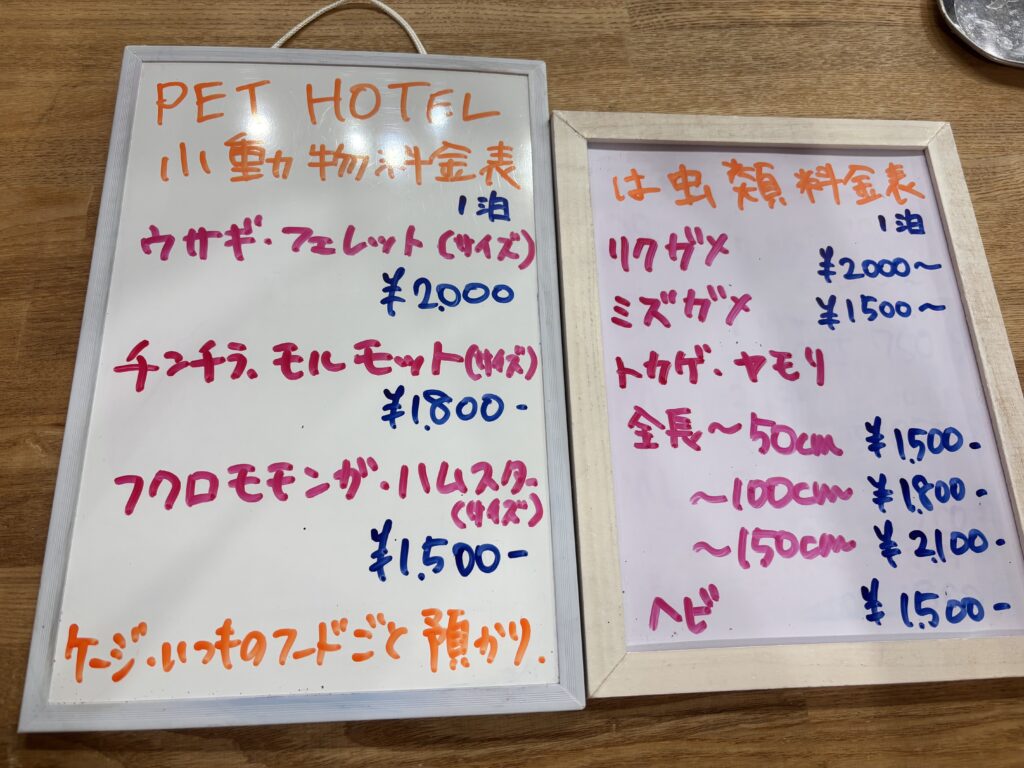 PET HOTEL
小動物料金表
1泊
ウサギ・フェレット(サイズ)
¥2.000
チンチラ、モルモット(サイズ)
¥1.800-
フクロモモンガ・ハムスター
(サイズ)
¥1.500-
ケージ・いつものフードごと預かり.
は虫類料金表
1泊
リクガメ ¥2000~
ミズガメ ¥1500~
トカゲ・ヤモリ
全長~50cm ¥1.500-
~100cm ¥1.800-
~150cm ¥2.100-
ヘビ ¥1.500-